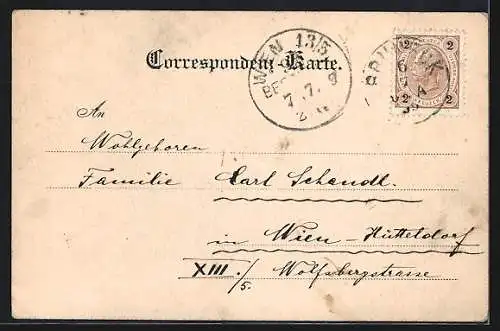 Correspondenz-Karte.
WIEN 13/5
7.7.
2 2
2 2
An
Wohlgeboren
Familie Carl Schandl.
in Wien – Hütteldorf
XIII./5. Wolfsbergstrasse